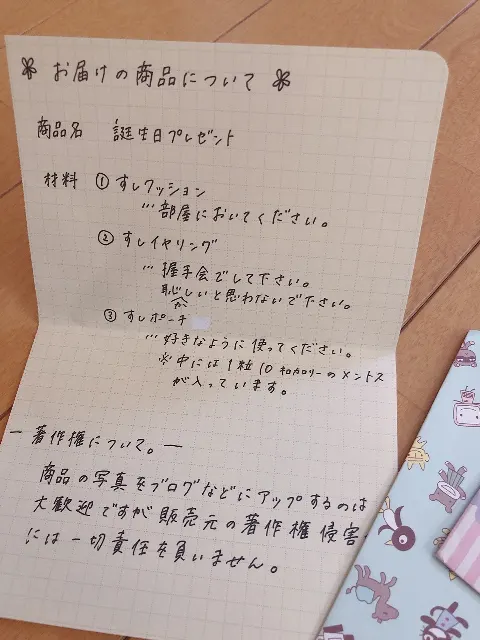 お届けの商品について
商品名 誕生日プレゼント
材料 ①すしクッション
…部屋においてください。
②すしイヤリング
…握手会でして下さい。
恥かしいと思わないで下さい。
③すしポーチ
…好きなように使ってください。
※中には1粒10キロカロリーのメントス
が入っています。
ー著作権について。ー
商品の写真をブログなどにアップするのは
大歓迎ですが販売元の著作権侵害
には一切責任を負いません。